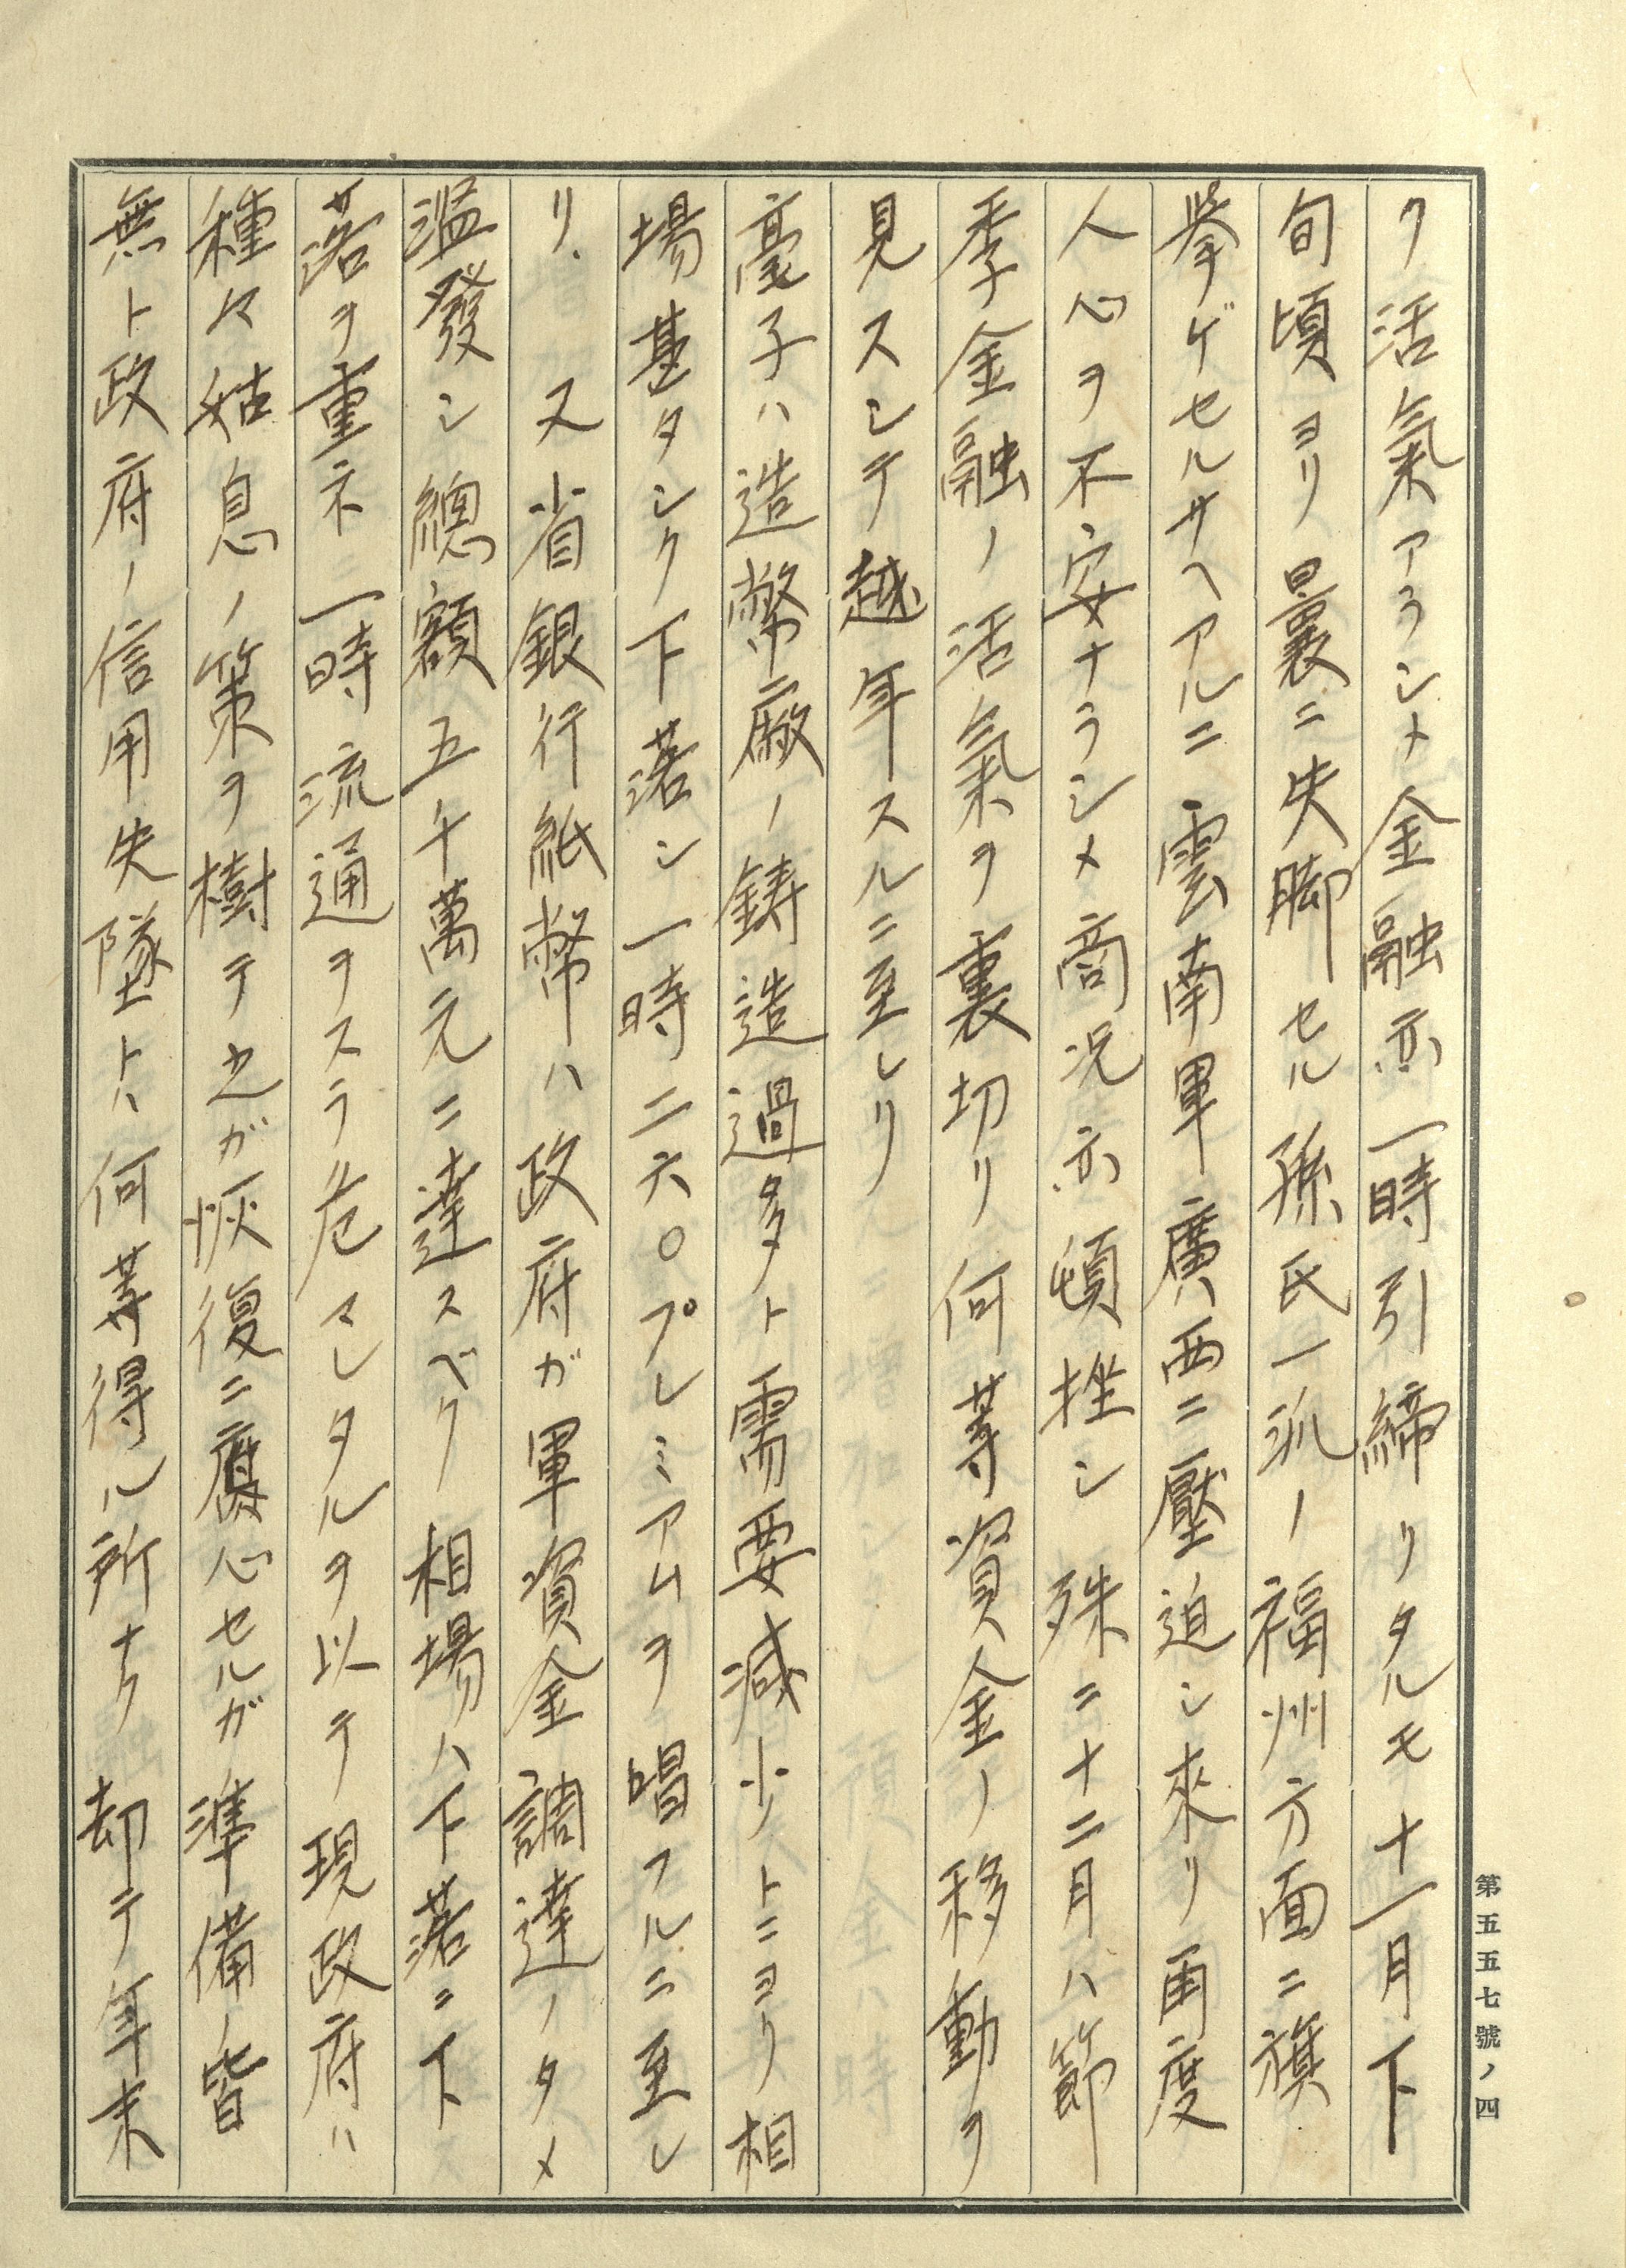 ク活氣アラシメ金融亦一時引締リタルモ十一月下
旬頃ヨリ曩ニ失脚セル孫氏一派ノ福州方面ニ旗
擧ゲセルサヘアルニ雲南軍廣西ニ壓迫シ來リ再度
人心ヲ不安ナラシメ商況亦頓挫シ殊ニ十二月ハ節
季金融ノ活氣ヲ裏切リ何等資金ノ移動ヲ
見スシテ越年スルニ至レリ
毫子ハ造幣廠ノ鋳造過多ト需要減少トニヨリ相
場甚タシク下落シ一時二六〇プレミアムヲ唱フルニ至レ
リ、又省銀行紙幣ハ政府ガ軍資金調達ノタメ
濫發シ總額五千萬元ニ達スベク相場ハ下落ニ下
落ヲ重ネ一時流通ヲスラ危マレタルヲ以テ現政府ハ
種々姑息ノ策ヲ樹テ之ガ恢復ニ腐心セルガ準備ノ皆
無ト政府ノ信用失墜トハ何等得ル所ナク却テ年末
第五五七號ノ四